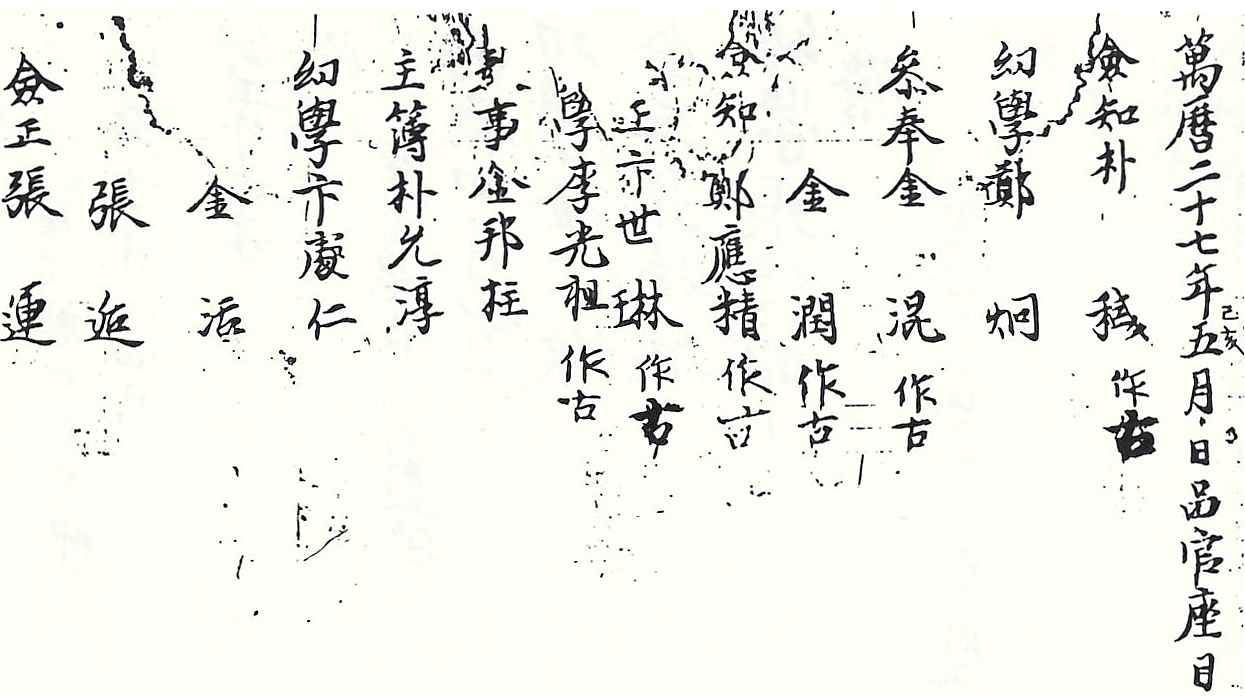 萬曆二十七年己亥五月日品官座目
僉知朴 穢作古
幼學鄭 炯
參奉金 混作古
金 潤作古
僉知鄭應精作古
正卞世琳作古
學李光祖作古
事金邦柱
主簿朴允淳
幼學卞獻仁
金 活
張 逅
僉正張 運